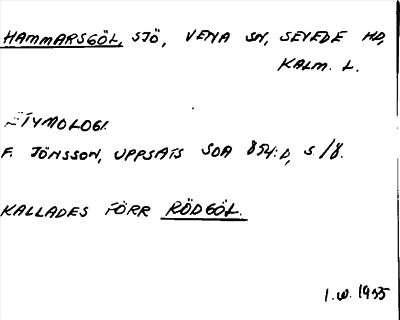 HAMMARSGÖL, SJÖ, VENA SN, SEVEDE HD,
KALM. L.
ETYMOLOGI.
F. JÖNSSON, UPPSATS SOA 854:D, S/8.
KALLADES FÖRR RÖDGÖL.
I.W. 1955